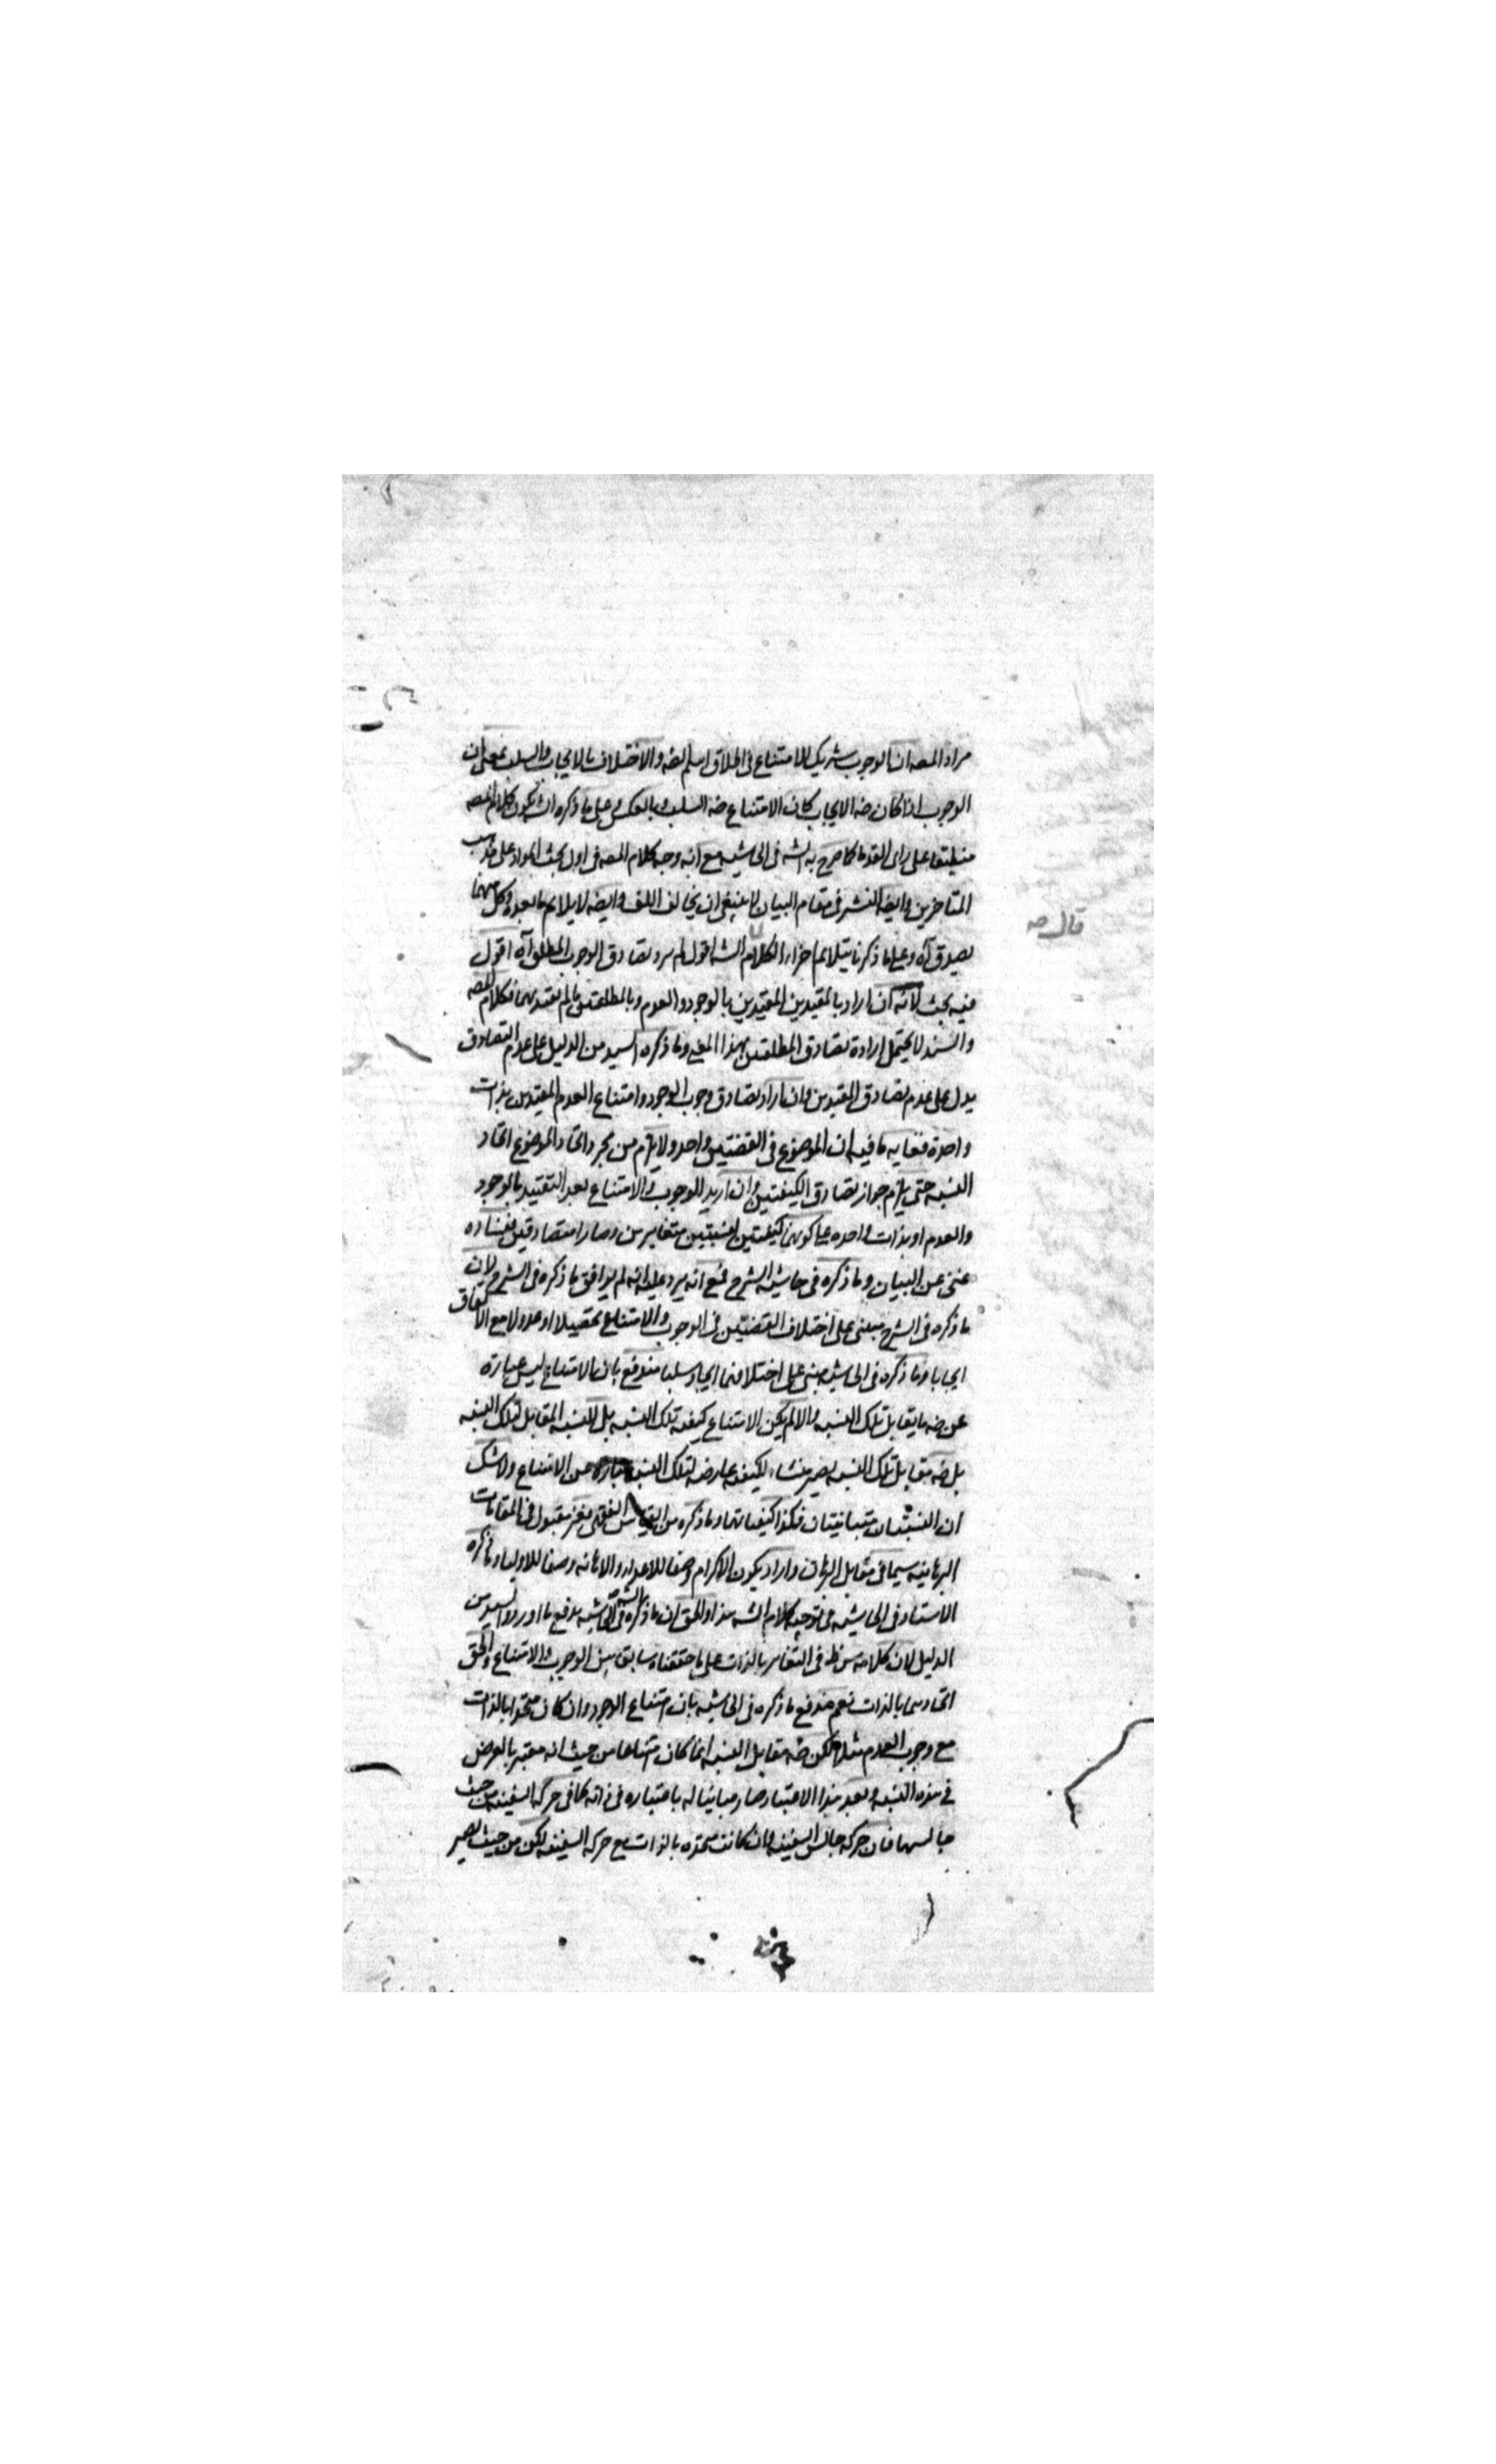 مراد المصه ان الوجوب شريك الامتناع فى اطلاق اسلم الضه والاختلاف بالايجاب والسلب بمعنى ان
الوجوب اذا كان ضه الايجاب كان الامتناع ضه السلب وبالعكس وعلى ما ذكره الش يكون كلام المصه
منطبقا على راى القدما كما صرح به الشه فى الحاشيه مع انه وجه كلام المصه فى اول بحث المواد على مذهب
المتاخرين وايضه النشر فى مقام البيان لا ينبغى ان يخالف اللف وايضه لا يلايم ما بعده وكل منهما
يصدق آه وعلى ما ذكرنا يتلايم اجزاء الكلام الشه اقول لم يرد تصادق الوجوب المطلق آه اقول
فيه بحث لانه ان اراد بالمقيدين المقيدين بالوجود والعدم وبالمطلقين ما لم يقيد بهما فكلام المصه
والسند لا يحتمل ارادة تصادق المطلقين بهذا المعنى وما ذكره السيد من الدليل على عدم التصادق
يدل على عدم تصادق المقيدين وان اراد تصادق وجوب الوجود وامتناع العدم المقيدين بذات
واحدة فغايه ما فيه ان الموضوع فى القضتين واحد ولا يلزم من مجرد اتحاد الموضوع اتحاد
النسبه حتى يلزم جواز تصادق الكيفيتين وان اريد الوجوب والامتناع بعد التقييد بالوجود
والعدم او بذات واحده على كونهما كيفيتين لنسبتين متغايرين وصارا متصادقين ففساده
غنى عن البيان وما ذكره فى حاشيه الشرح فمع انه يرد عليه انه لم يوافق ما ذكره فى الشرح لان
ما ذكره فى الشرح مبنى على اختلاف القضتين فى الوجوب والامتناع تحصيلا او عدولا مع الاتفاق
ايجابا وما ذكره فى الحاشيه مبنى على اختلافهما ايجابا وسلبا مندفع بان الامتناع ليس عبارة
عن ضه ما يقابل تلك النسبه والا لم يكن الامتناع كيفيه تلك النسبه بل للنسبه المقابل لتلك النسبه
بل ضه مقابل تلك النسبه يصير منشاء لكيفيه عارضه لتلك النسبه عبارة عن الامتناع ولا شك
ان النسبتان متباينتان فكذا كيفياتهما وما ذكره من القياس الفقهى فغير مقبول فى المقامات
البرهانيه سيما فى مقابل البرهان واراد يكون الاكرام وصفا للاعداء والاهانه وصفا للاوليا وما ذكره
الاستاد فى الحاشيه فى توجيه كلام الشه هذا والحق ان ما ذكره الشه فى الحاشيه يدفع ما اورده السيد من
الدليل لان كلامه س ظه فى التغاير بالذات على ما حققناه سابق بين الوجوب والامتناع والحق
اتحادهما بالذات نعم مندفع ما ذكره فى الحاشيه بان امتناع الوجود وان كان متحدا بالذات
مع وجوب العدم مثلا لكن ضه مقابل النسبه انما كان امتناعا من حيث انه معتبر بالعرض
فى هذه النسبه وبعد هذا الاعتبار صار مباينا له باعتباره فى ذاته كما فى حركه السفينه من حيث
جالسها فان حركه جالس السفينه وان كانت متحده بالذات مع حركه السفينه لكن من حيث يصير
قال صه